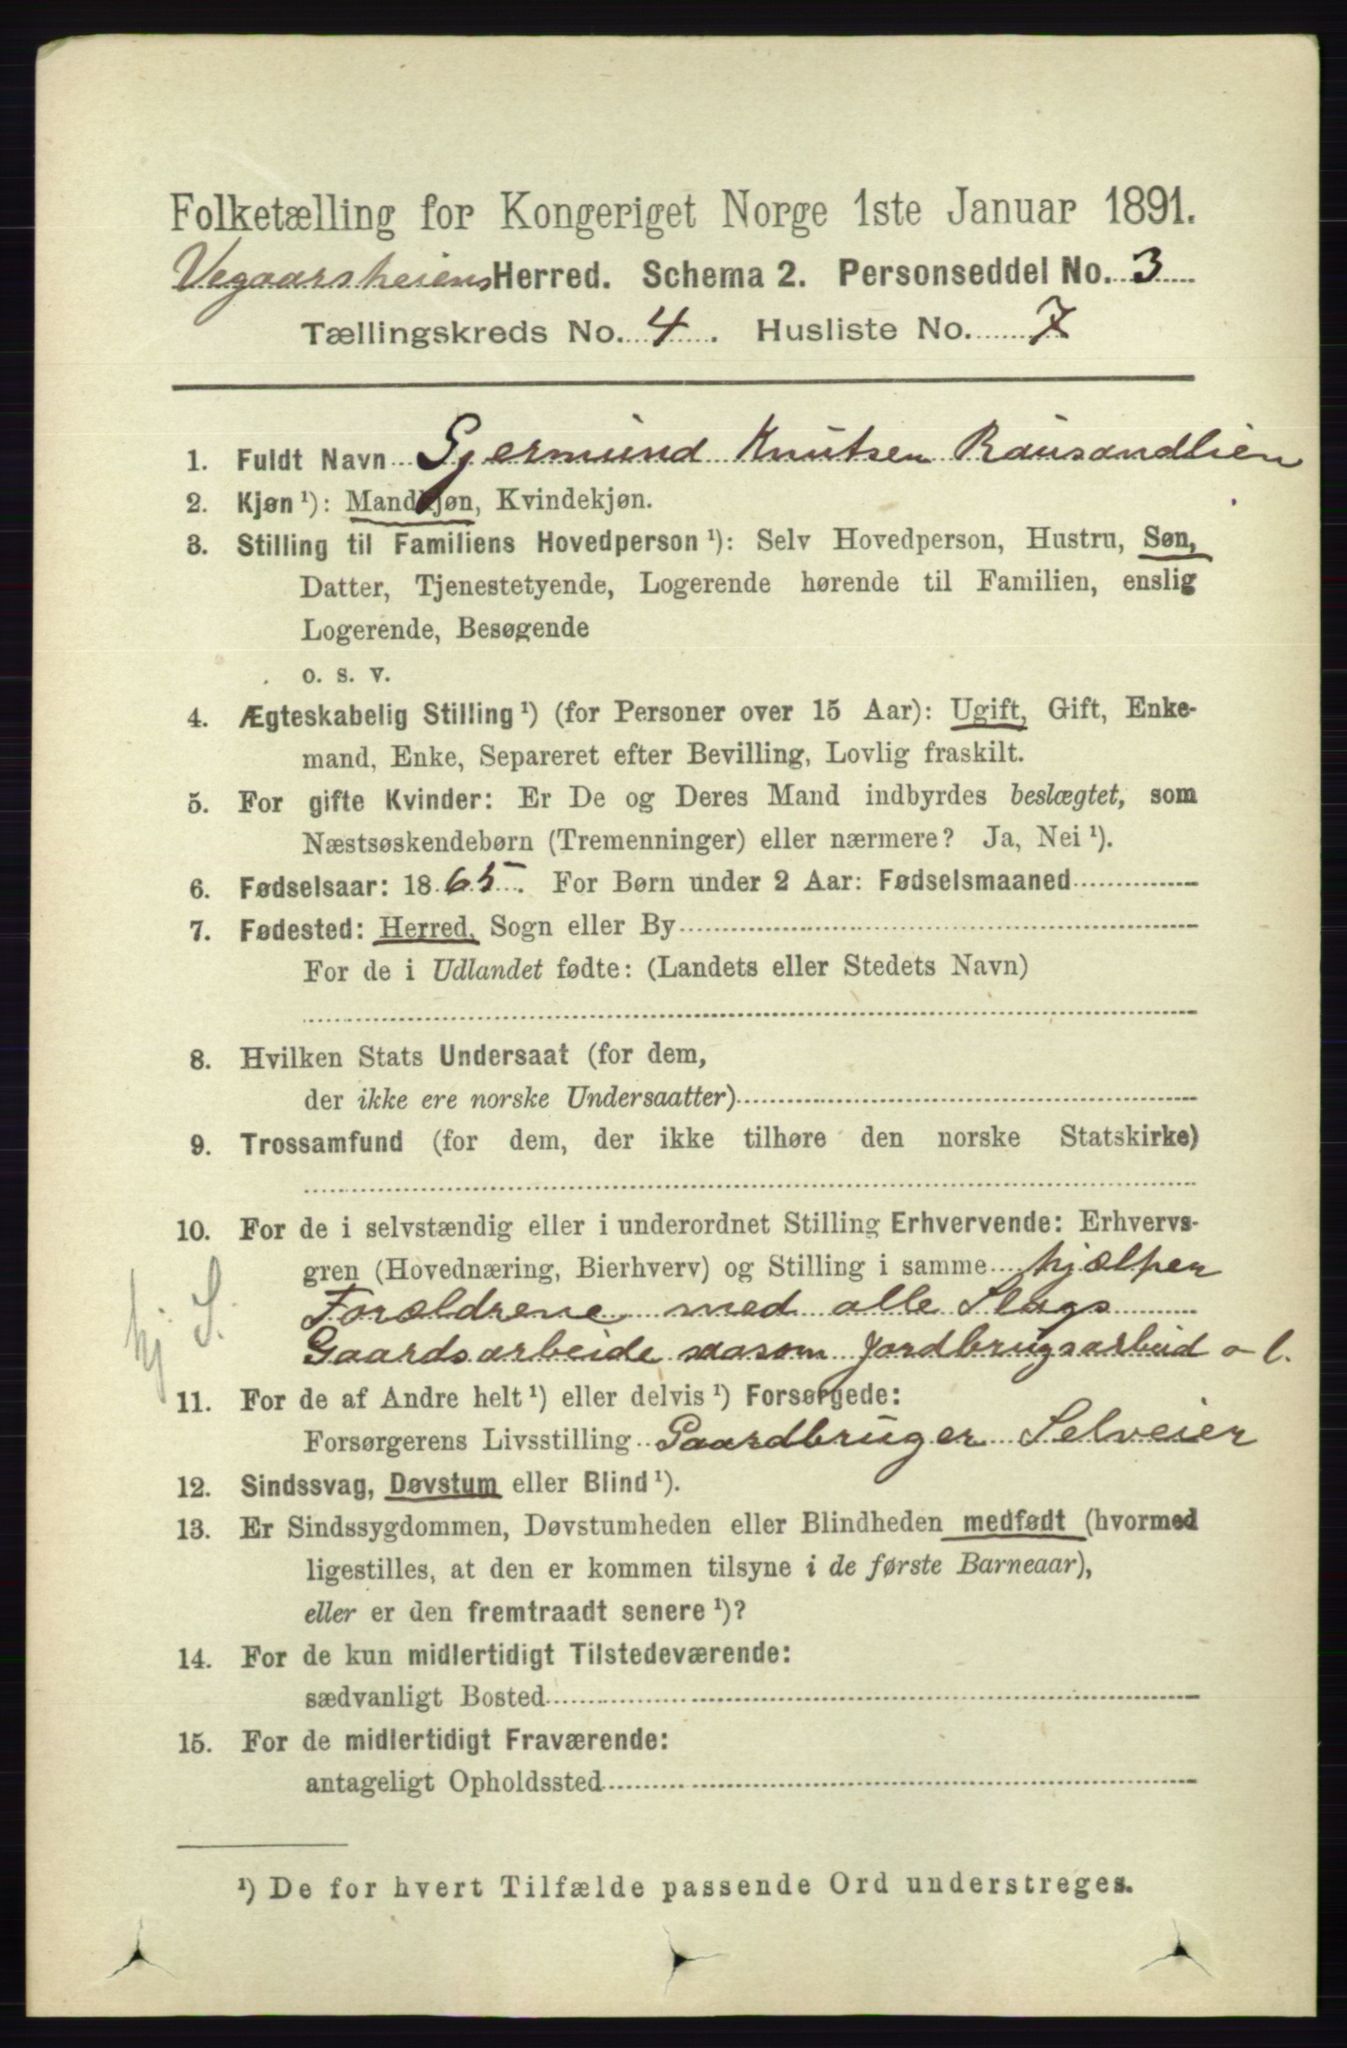 Folketælling for Kongeriget Norge 1ste Januar 1891.
Vegaarsheiens Herred. Schema 2. Personseddel No. 3
Tællingskreds No. 4. Husliste No. 7
1. Fuldt Navn Gjermund Knutsen Rausandlien
2. Kjøn¹): Mandkjøn, Kvindekjøn.
3. Stilling til Familiens Hovedperson¹): Selv Hovedperson, Hustru, Søn,
Datter, Tjenestetyende, Logerende hørende til Familien, enslig
Logerende, Besøgende
o. s. v.
4. Ægteskabelig Stilling¹) (for Personer over 15 Aar): Ugift, Gift, Enke-
mand, Enke, Separeret efter Bevilling, Lovlig fraskilt.
5. For gifte Kvinder: Er De og Deres Mand indbyrdes beslægtet, som
Næstsøskendebørn (Tremenninger) eller nærmere? Ja, Nei¹).
6. Fødselsaar: 1865. For Børn under 2 Aar: Fødselsmaaned
7. Fødested: Herred, Sogn eller By
For de i Udlandet fødte: (Landets eller Stedets Navn)
8. Hvilken Stats Undersaat (for dem,
der ikke ere norske Undersaatter)
9. Trossamfund (for dem, der ikke tilhøre den norske Statskirke)
10. For de i selvstændig eller i underordnet Stilling Erhvervende: Erhvervs-
gren (Hovednæring, Bierhverv) og Stilling i samme hjælper
Forældrene med alle Slags
Gaardsarbeide saasom Jordbrugsarbeid o l.
hj S.
11. For de af Andre helt¹) eller delvis¹) Forsørgede:
Forsørgerens Livsstilling Gaardbruger Selveier
12. Sindssvag, Døvstum eller Blind¹).
13. Er Sindssygdommen, Døvstumheden eller Blindheden medfødt (hvormed
ligestilles, at den er kommen tilsyne i de første Barneaar),
eller er den fremtraadt senere¹)?
14. For de kun midlertidigt Tilstedeværende:
sædvanligt Bosted
15. For de midlertidigt Fraværende:
antageligt Opholdssted
¹) De for hvert Tilfælde passende Ord understreges.